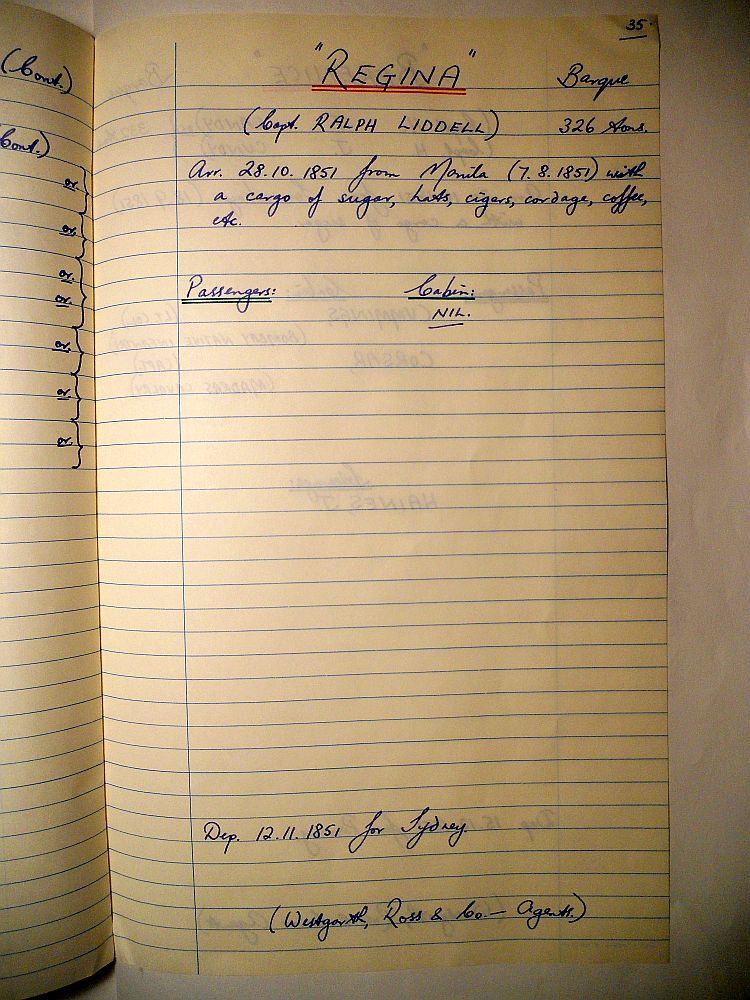 (Cont.)
Cont.)
or.
or.
or.
or.
or.
or.
or.
35.
"REGINA" Barque
(Capt. RALPH LIDDELL) 326 tons.
Arr. 28.10.1851 from Manila (7.8.1851) with
a cargo of sugar, hats, cigars, cordage, coffee,
etc.
Passengers: Cabin:
NIL.
Dep. 12.11.1851 for Sydney.
(Westgarth, Ross & Co. — Agents.)